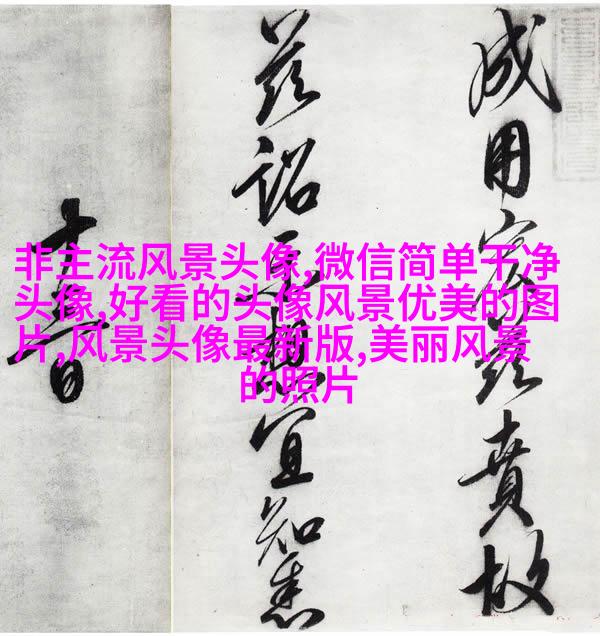 非主流风景头像,微信简单干净
头像,好看的头像风景优美的图
片,风景头像最新版,美丽风景
的照片
成用賁故
茲詔示想宜知悉